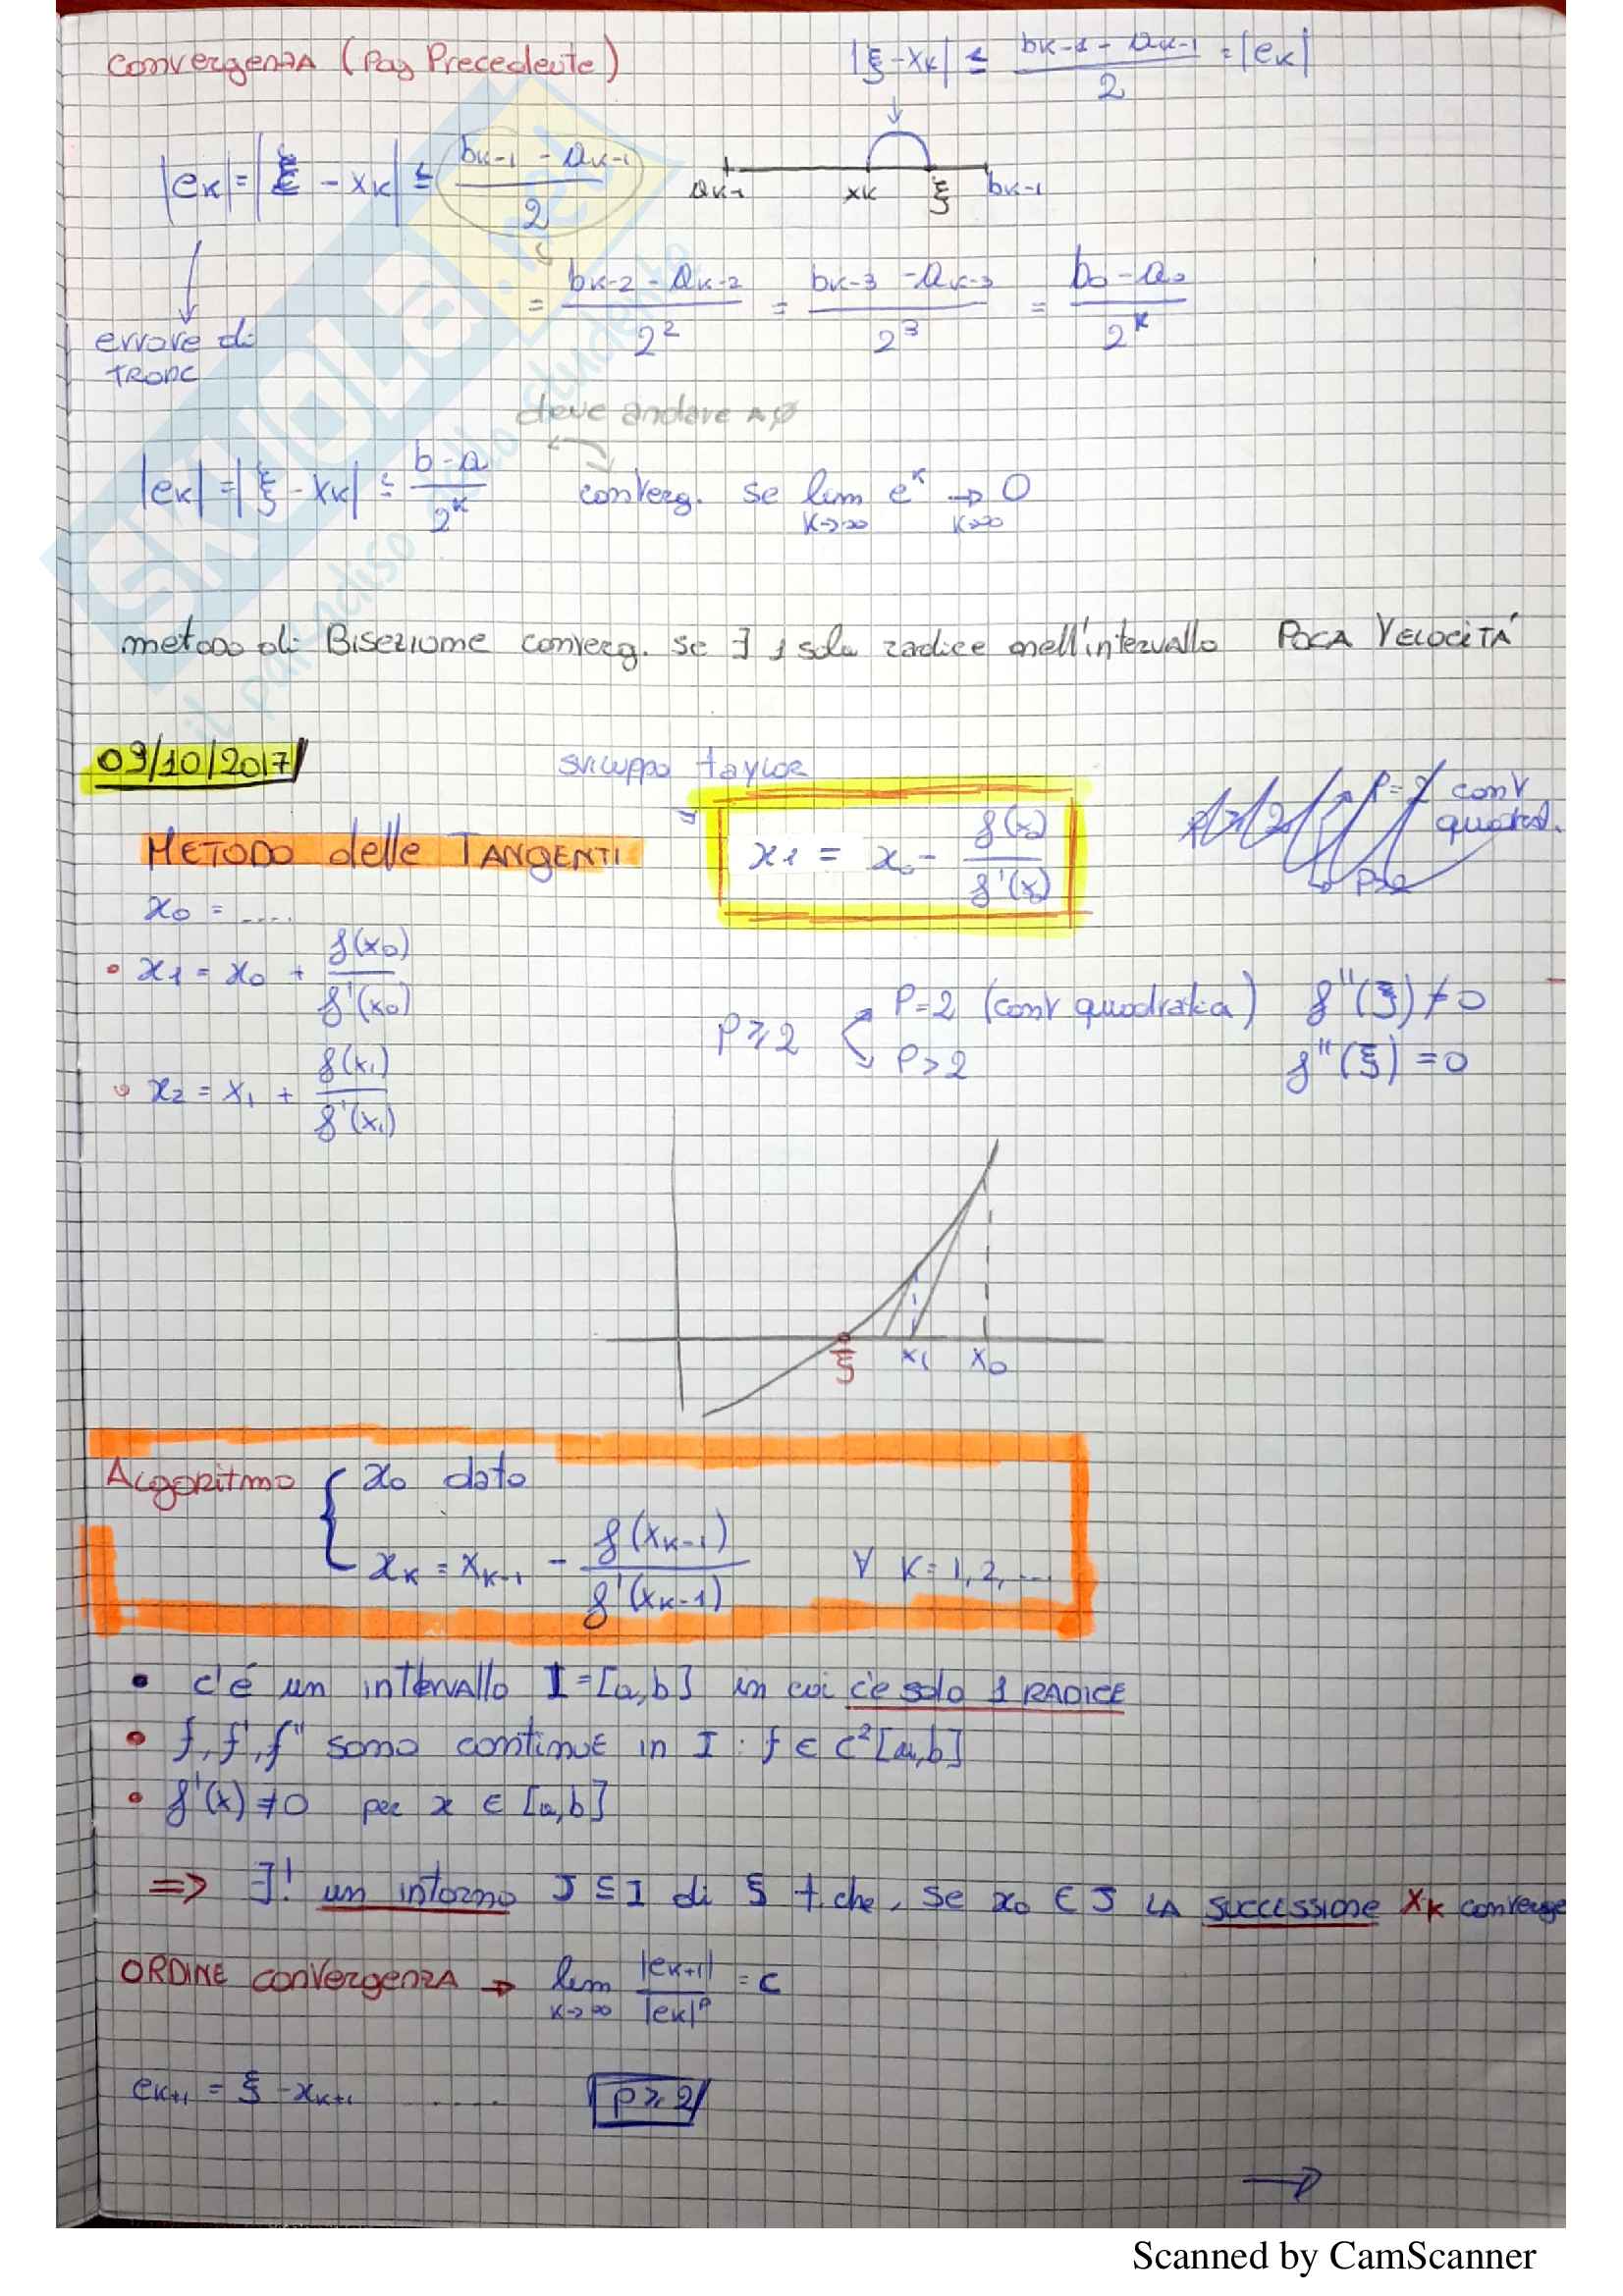 convergenza (Pag Precedente) |ξ-xk| ≤ (bk-1 - ak-1)/2 = |ek|
|ek| = |ξ - xk| ≤ (bk-1 - ak-1)/2
ak-1 xk ξ bk-1
= (bk-2 - ak-2)/2² = (bk-3 - ak-3)/2³ = (b0 - a0)/2^k
errore di
TRONC
deve andare A 0
|ek| = |ξ - xk| ≤ (b-a)/2^k converg. se lim k→∞ e^k → 0 k→∞
metodo di Bisezione converg. se ∃ 1 sola radice nell'intervallo POCA VELOCITÁ
09/10/2017
sviluppo taylor
METODO delle TANGENTI
x1 = x0 - f(x0)/f'(x0)
conv
quadrat.
x0 = ....
• x1 = x0 + f(x0)/f'(x0)
P ≥ 2
P=2 (conv quadratica) f''(ξ) ≠ 0
P>2 f''(ξ) = 0
• x2 = x1 + f(x1)/f'(x1)
ξ x1 x0
Algoritmo { x0 dato
xk = xk-1 - f(xk-1)/f'(xk-1) ∀ K=1,2,...
• c'é un intervallo I=[a,b] in cui c'è solo 1 RADICE
• f, f', f'' sono continue in I : f ∈ C²[a,b]
• f'(x) ≠ 0 per x ∈ [a,b]
=> ∃! un intorno J ⊆ I di ξ t.che, se x0 ∈ J LA SUCCESSIONE xk converge
ORDINE convergenza → lim k→∞ |ek+1|/|ek|^p = c
ek+1 = ξ - xk+1 ...... p ≥ 2
→
Scanned by CamScanner
SKUOLA.net
il paradiso dello studente